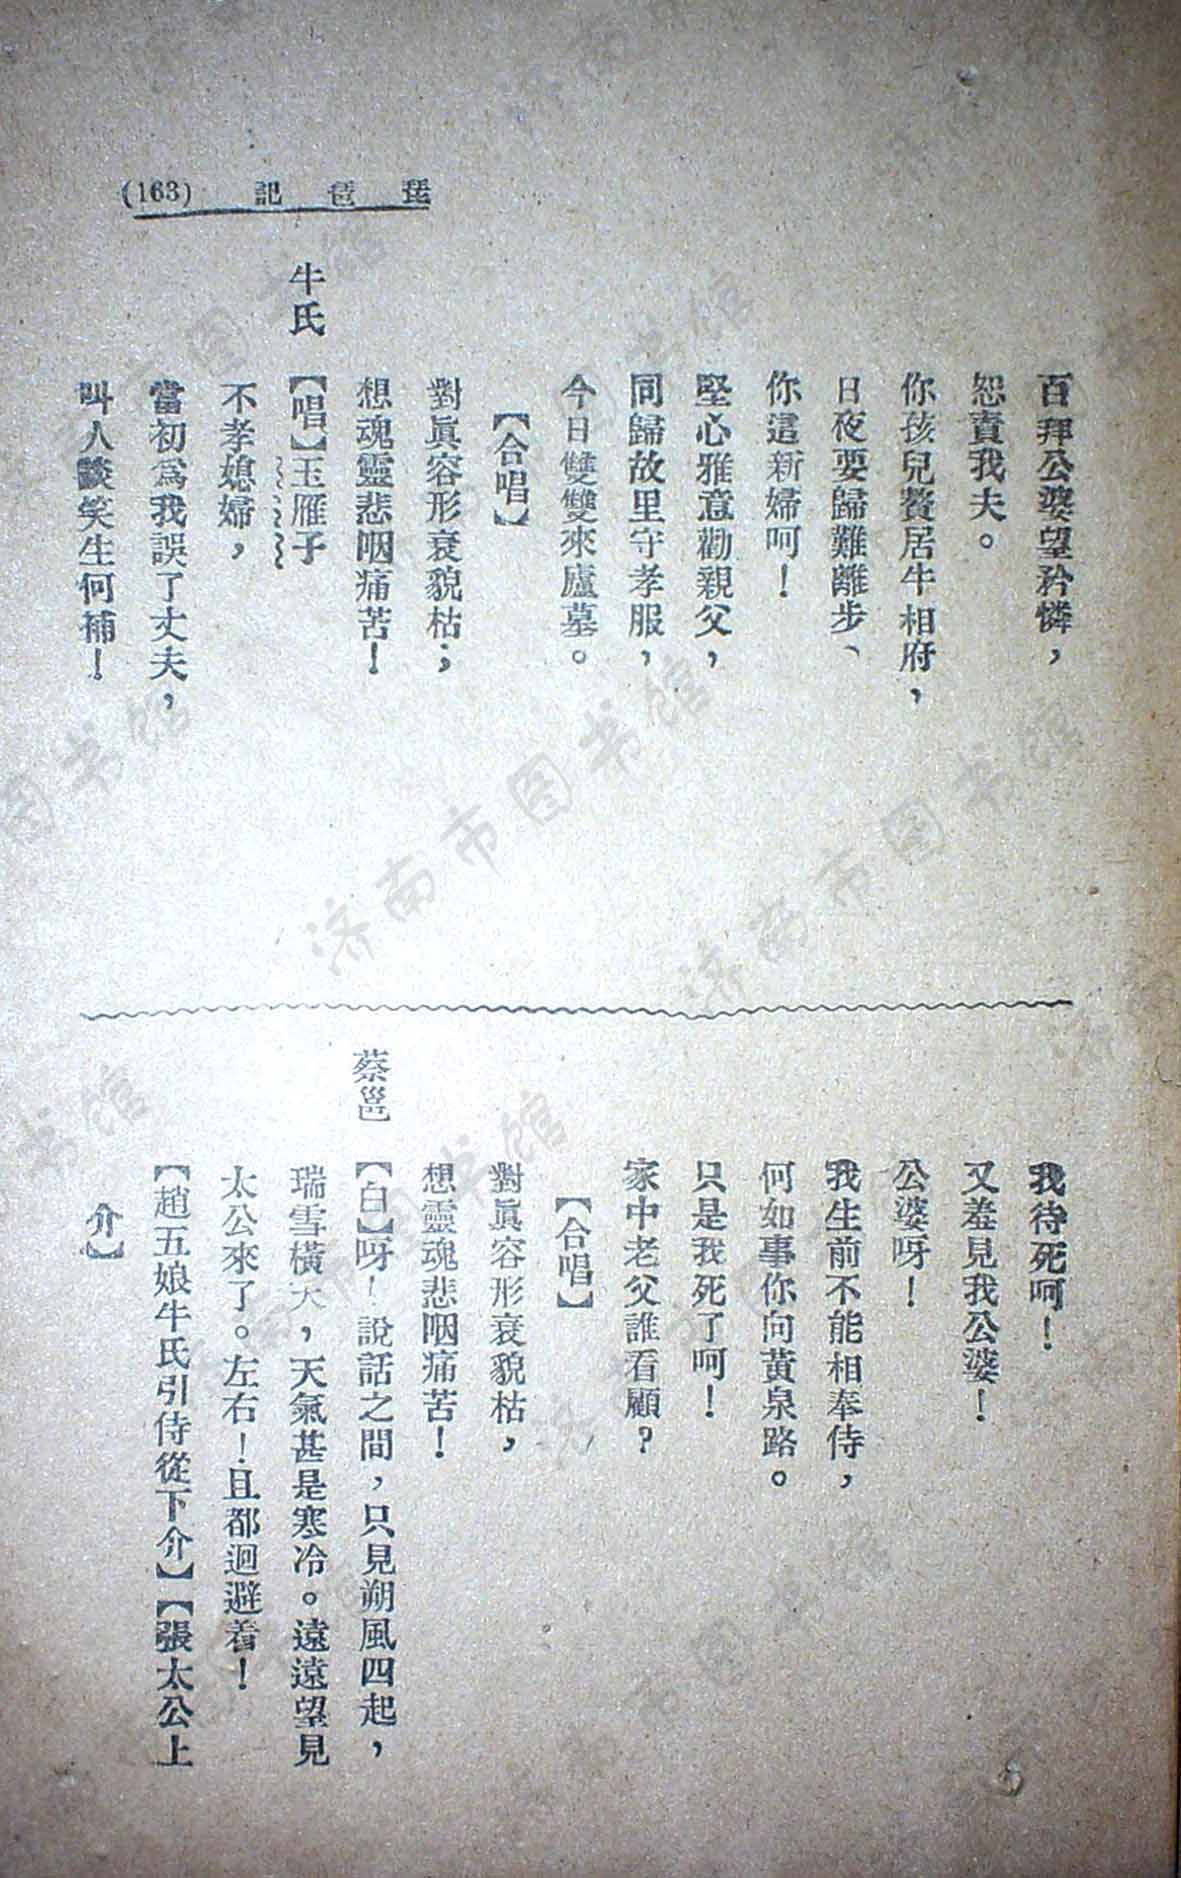 琵琶記 (163)
百拜公婆望矜憐，
恕責我夫。
你孩兒贅居牛相府，
日夜要歸難離步、
你這新婦呵！
堅心雅意勸親父，
同歸故里守孝服，
今日雙雙來廬墓。
【合唱】
對眞容形衰貌枯；
想魂靈悲咽痛苦！
牛氏 【唱】玉雁子
不孝媳婦，
當初爲我誤了丈夫，
叫人談笑生何補！
我待死呵！
又羞見我公婆！
公婆呀！
我生前不能相奉侍，
何如事你向黃泉路。
只是我死了呵！
家中老父誰看顧？
【合唱】
對眞容形衰貌枯，
想靈魂悲咽痛苦！
蔡邕 【白】呀！說話之間，只見朔風四起，
瑞雪橫天，天氣甚是寒冷。遠遠望見
太公來了。左右！且都迴避着！
【趙五娘牛氏引侍從下介】【張太公上
介】
济南市图书馆